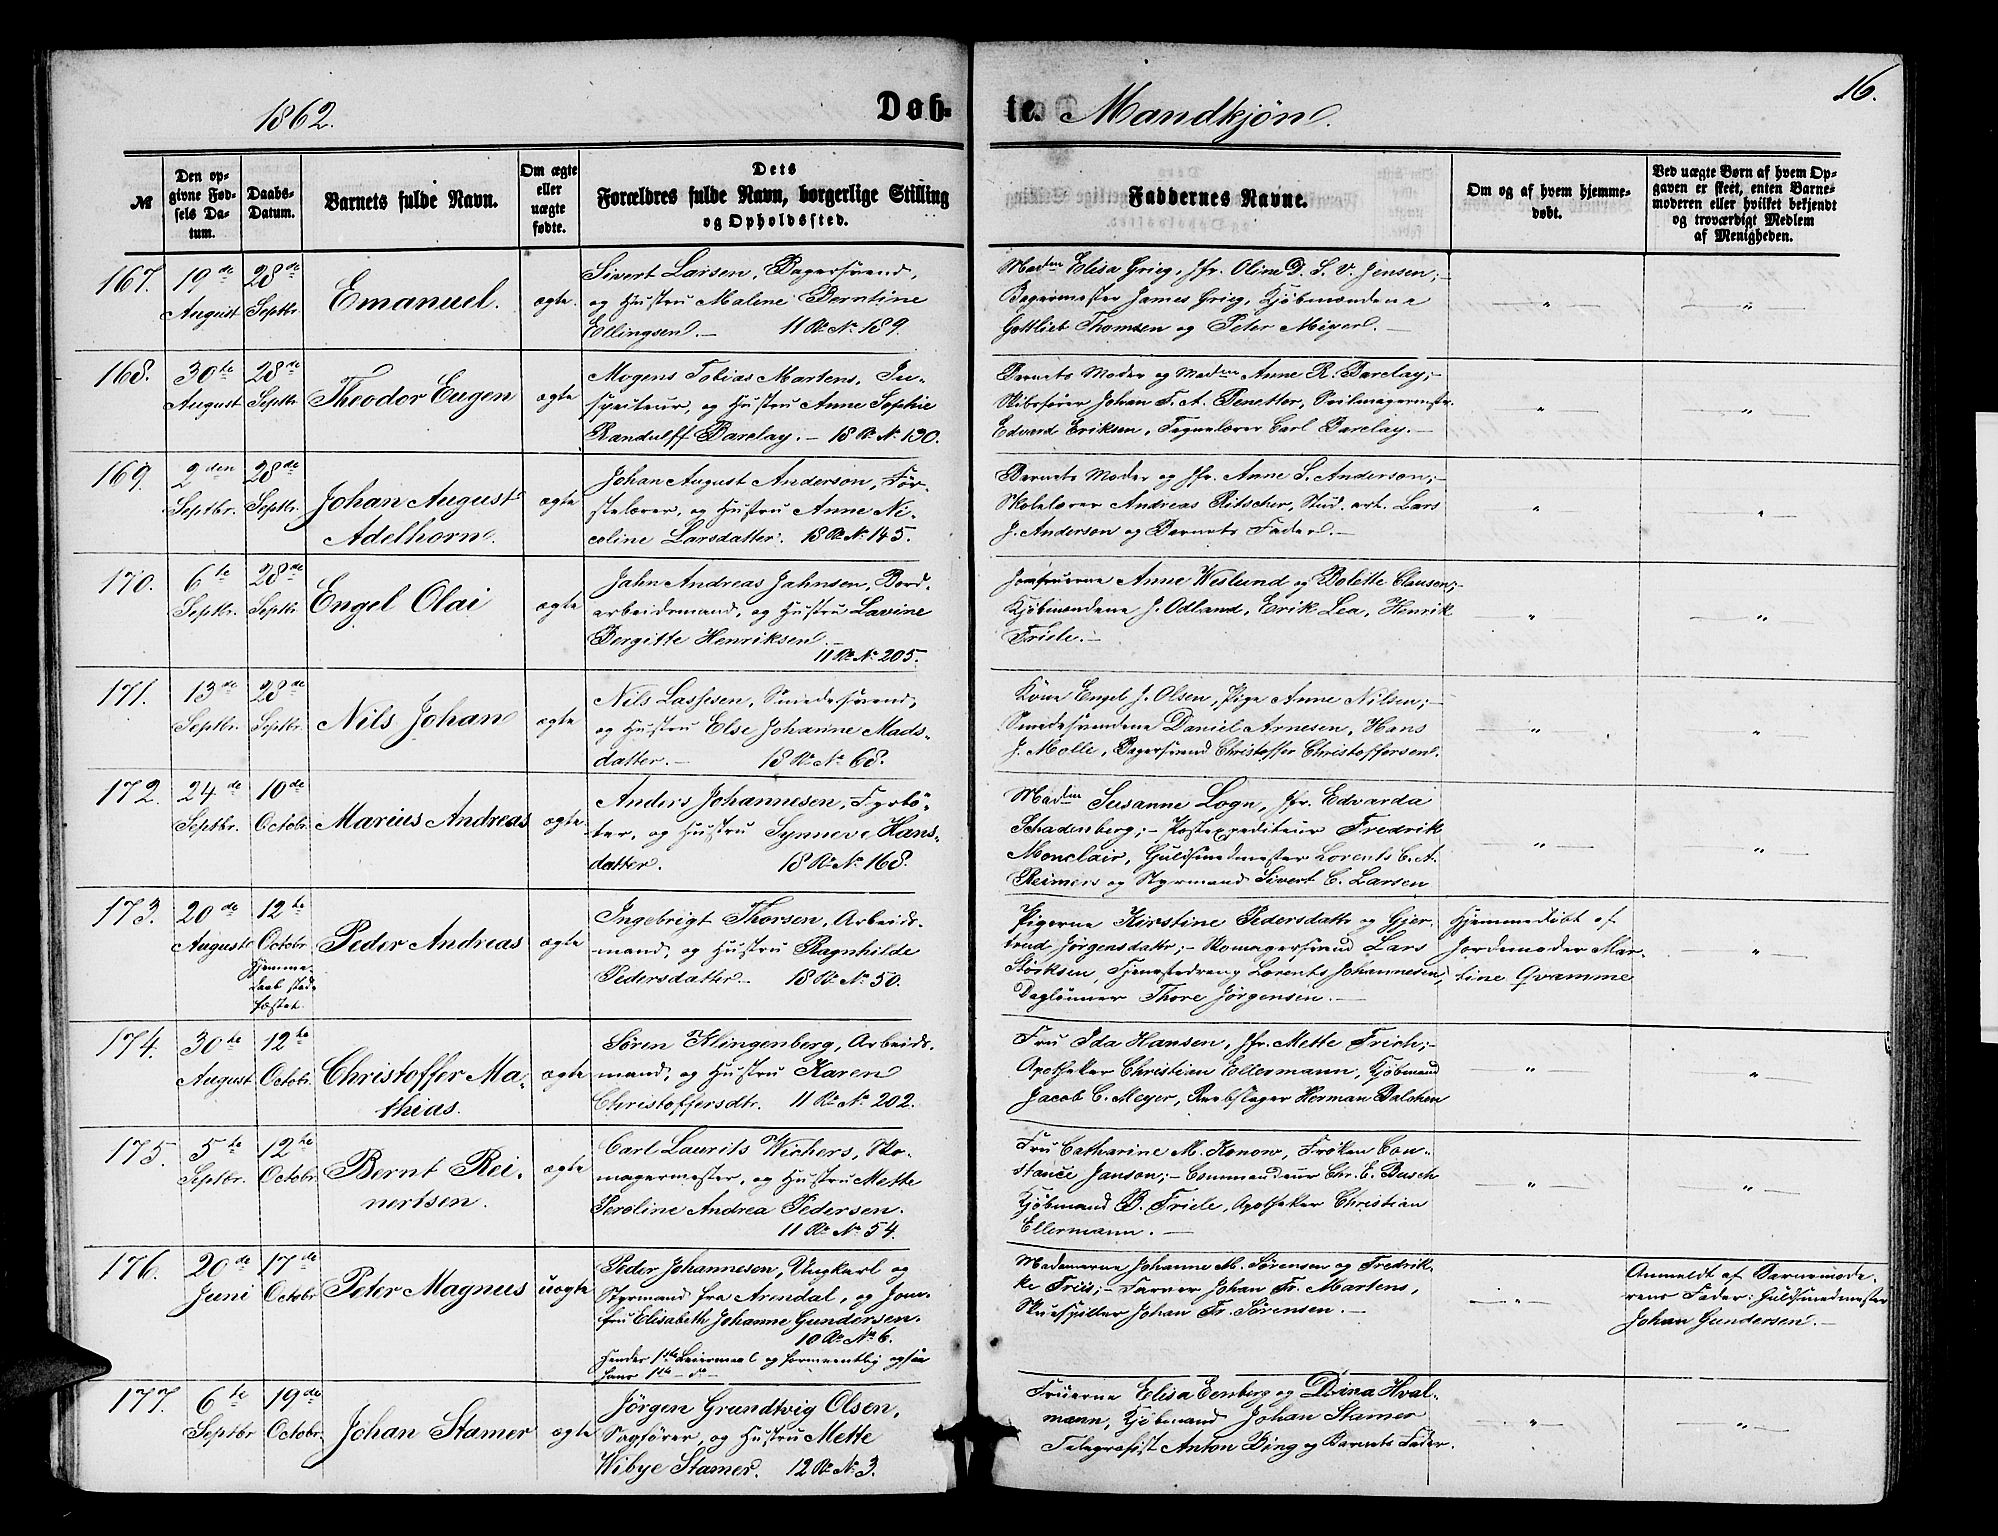 16.
1862.
Døb-
te. Mandkjøn.
№
Den op-
givne Fød-
sels Da-
tum.
Daabs-
Datum.
Barnets fulde Navn.
Om ægte
eller
uægte
fødte.
Dets
Forældres fulde Navn, borgerlige Stilling
og Opholdssted.
Faddernes Navne.
Om og af hvem hjemme-
døbt.
Ved uægte Børn af hvem Op-
gaven er skeet, enten Barne-
moderen eller hvilket bekjendt
og troværdigt Medlem
af Menigheden.
167.
19de
August
28de
Septbr.
Emanuel.
ægte.
Sivert Larsen, Bagersvend,
og Hustru Malene Berntine
Ellingsen. — 11 R. No. 189.
Madm Elisa Grieg, Jfr. Oline D. S. V. Jensen; —
Bagermester James Grieg, Kjøbmændene
Gottlieb Thomsen og Peter Meyer. —
168.
30te
August
28de
Septbr
Theodor Eugen
ægte
Mogens Tobias Martens, In-
specteur, og Hustru Anne Sophie
Randulff Barclay. — 18 R. N. 130.
Barnets Moder og Madm Anne R. Barclay; —
Skibsfører Johan F. A. Penetter, Seilmagermstr.
Edvard Eriksen, Tegnelærer Carl Barclay. —
169.
2den
Septbr.
28de
Septbr.
Johan August
Adelhorn.
ægte
Johan August Anderson, For-
stelærer, og Hustru Anne Ni-
coline Larsdatter. 18 R. N. 145.
Barnets Moder og Jfr. Anne S. Anderson; —
Skolelærer Andreas Ritscher, Stud. art. Lars
J. Anderson og Barnets Fader. —
170.
6te
Septbr.
28de
Septbr
Engel Olai
ægte
Jahn Andreas Jahnsen, Bord-
arbeidsmand, og Hustru Lavine
Bergitte Henriksen. —
11 R. No. 205.
Jomfruerne Anne Weslund og Bolette Clausen; —
Kjøbmændene J. Odland, Erik Lea, Henrik
Friele. —
171.
13de
Septbr.
28de
Septbr.
Nils Johan
ægte
Nils Lassesen, Smedesvend,
og Hustru Else Johanne Mads-
datter. — 18 R. No. 68.
Kone Engel J. Olsen, Pige Anne Nilsen; —
Smedesvendene Daniel Arnesen, Hans
J. Molle, Bagersvend Christoffer Christoffersen.
172.
24de
Septbr.
10de
Octobr.
Marius Andreas
ægte
Anders Johannesen, Fyrbö-
ter, og Hustru Synneve Hans-
datter. 18 R. No. 168.
Madm Susanne Logn, Jfr. Edvarda
Schadenberg; — Postexpediteur Fredrik
Monclair, Guldsmedmester Lorents C. A.
Reimers og Styrmand Sivert C. Larsen
173.
20de
August
12te
Octobr.
Hjemme-
daab stad-
fæstet.
Peder Andreas
ægte
Ingebrigt Thorsen, Arbeids-
mand, og Hustru Ragnhilde
Pedersdatter. — 18 R. No. 50.
Pigerne Kirstine Pedersdatr og Gjer-
trud Jørgensdatr; — Skomagersvend Lars
Störksen, Tjenestedreng Lorents Johannesen,
Daglønner Thore Jørgensen. —
Hjemmedøbt af
Jordemoder Mar-
tine Qvamme
174.
30te
August
12te
Octobr.
Christoffer Ma-
thias.
ægte
Søren Klingenberg, Arbeids-
mand, og Hustru Karen
Christoffersdtr. 11 R. No. 202.
Fru Ida Hansen, Jfr. Mette Frich; —
Apotheker Christian Ellermann, Kjøbmand
Jacob C. Meyer, Reebslager Herman Balchen
175.
5te
Septbr.
12te
Octobr.
Bernt Rei-
nertsen.
ægte
Carl Laurits Wichers, Sko-
magermester, og Hustru Mette
Seroline Andrea Pedersen.
11 R. No. 54.
Fru Catharine M. Konow, Frøken Con-
stance Janson; — Commandeur Chr. E. Busch
Kjøbmand B. Friele, Apotheker Christian
Ellermann. —
176.
20de
Juni
17de
Octobr
Peter Magnus
uægte
Peder Johannesen, Ungkarl og
Styrmand fra Arendal, og Jom-
fru Elisabeth Johanne Gundersen.
10 R. No. 6.
Hendes 1ste Leiermaal og formeentlig ogsaa
hans 1ste — do —
Madamerne Johanne M. Sørensen og Fredrik-
ke Friis; — Farver Johan Fr. Martens,
Skuespiller Johan Fr. Sørensen. —
Anmeldt af Barnemode-
rens Fader: Guldsmedmester
Johan Gundersen. —
177.
6te
Septbr
19de
Octobr.
Johan Stamer
ægte
Jørgen Grundtvig Olsen,
Sagfører, og Hustru Mette
Wibye Stamer. 12 R. No. 3.
Fruerne Elisa Eenberg og Dina Hval-
mann, Kjøbmand Johan Stamer
Telegrafist Anton Bing og Barnets Fader.